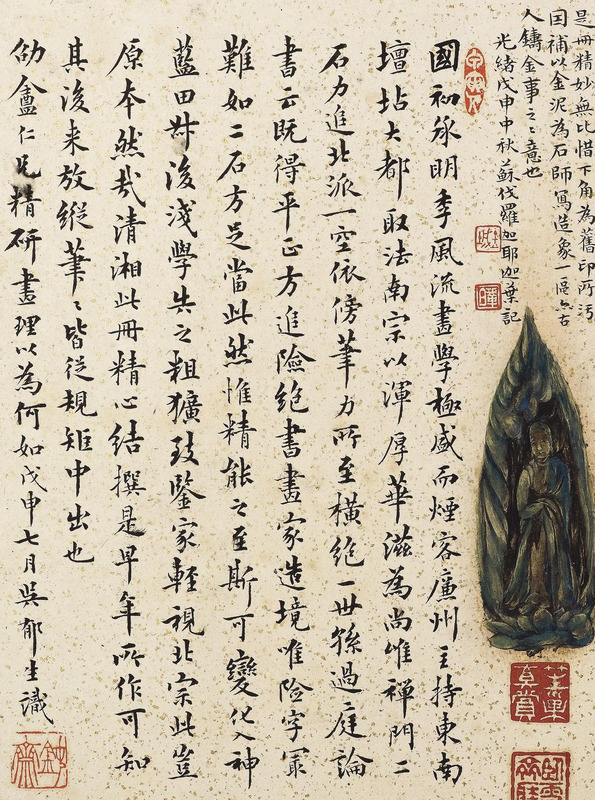 是冊精妙無比惜下角為舊印所污
因補以金泥為石師寫造象一區亦古
人鑄金事之〻意也
光緒戊申中秋蘇伐羅迦耶迦葉記
國初承明季風流畫學極盛而煙客廉州主持東南
壇坫大都取法南宗以渾厚華滋為尚唯禪門二
石力追北派一空依傍筆力所至橫絕一世孫過庭論
書云既得平正方追險絕書畫家造境唯險字冣
難如二石方足當此然惟精能之至斯可變化入神
藍田叔後淺學失之粗獷致鑒家輕視北宗此豈
原本然哉清湘此冊精心結撰是早年所作可知
其後來放縱筆〻皆從規矩中出也
劬盦仁兄精研畫理以為何如戊申七月吳郁生識